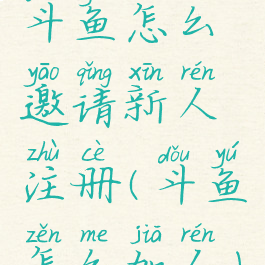 斗鱼怎么
yāo qǐng xīn rén
邀请新人
zhù cè dǒu yú
注册(斗鱼
zěn me jiā rén
怎么加人)